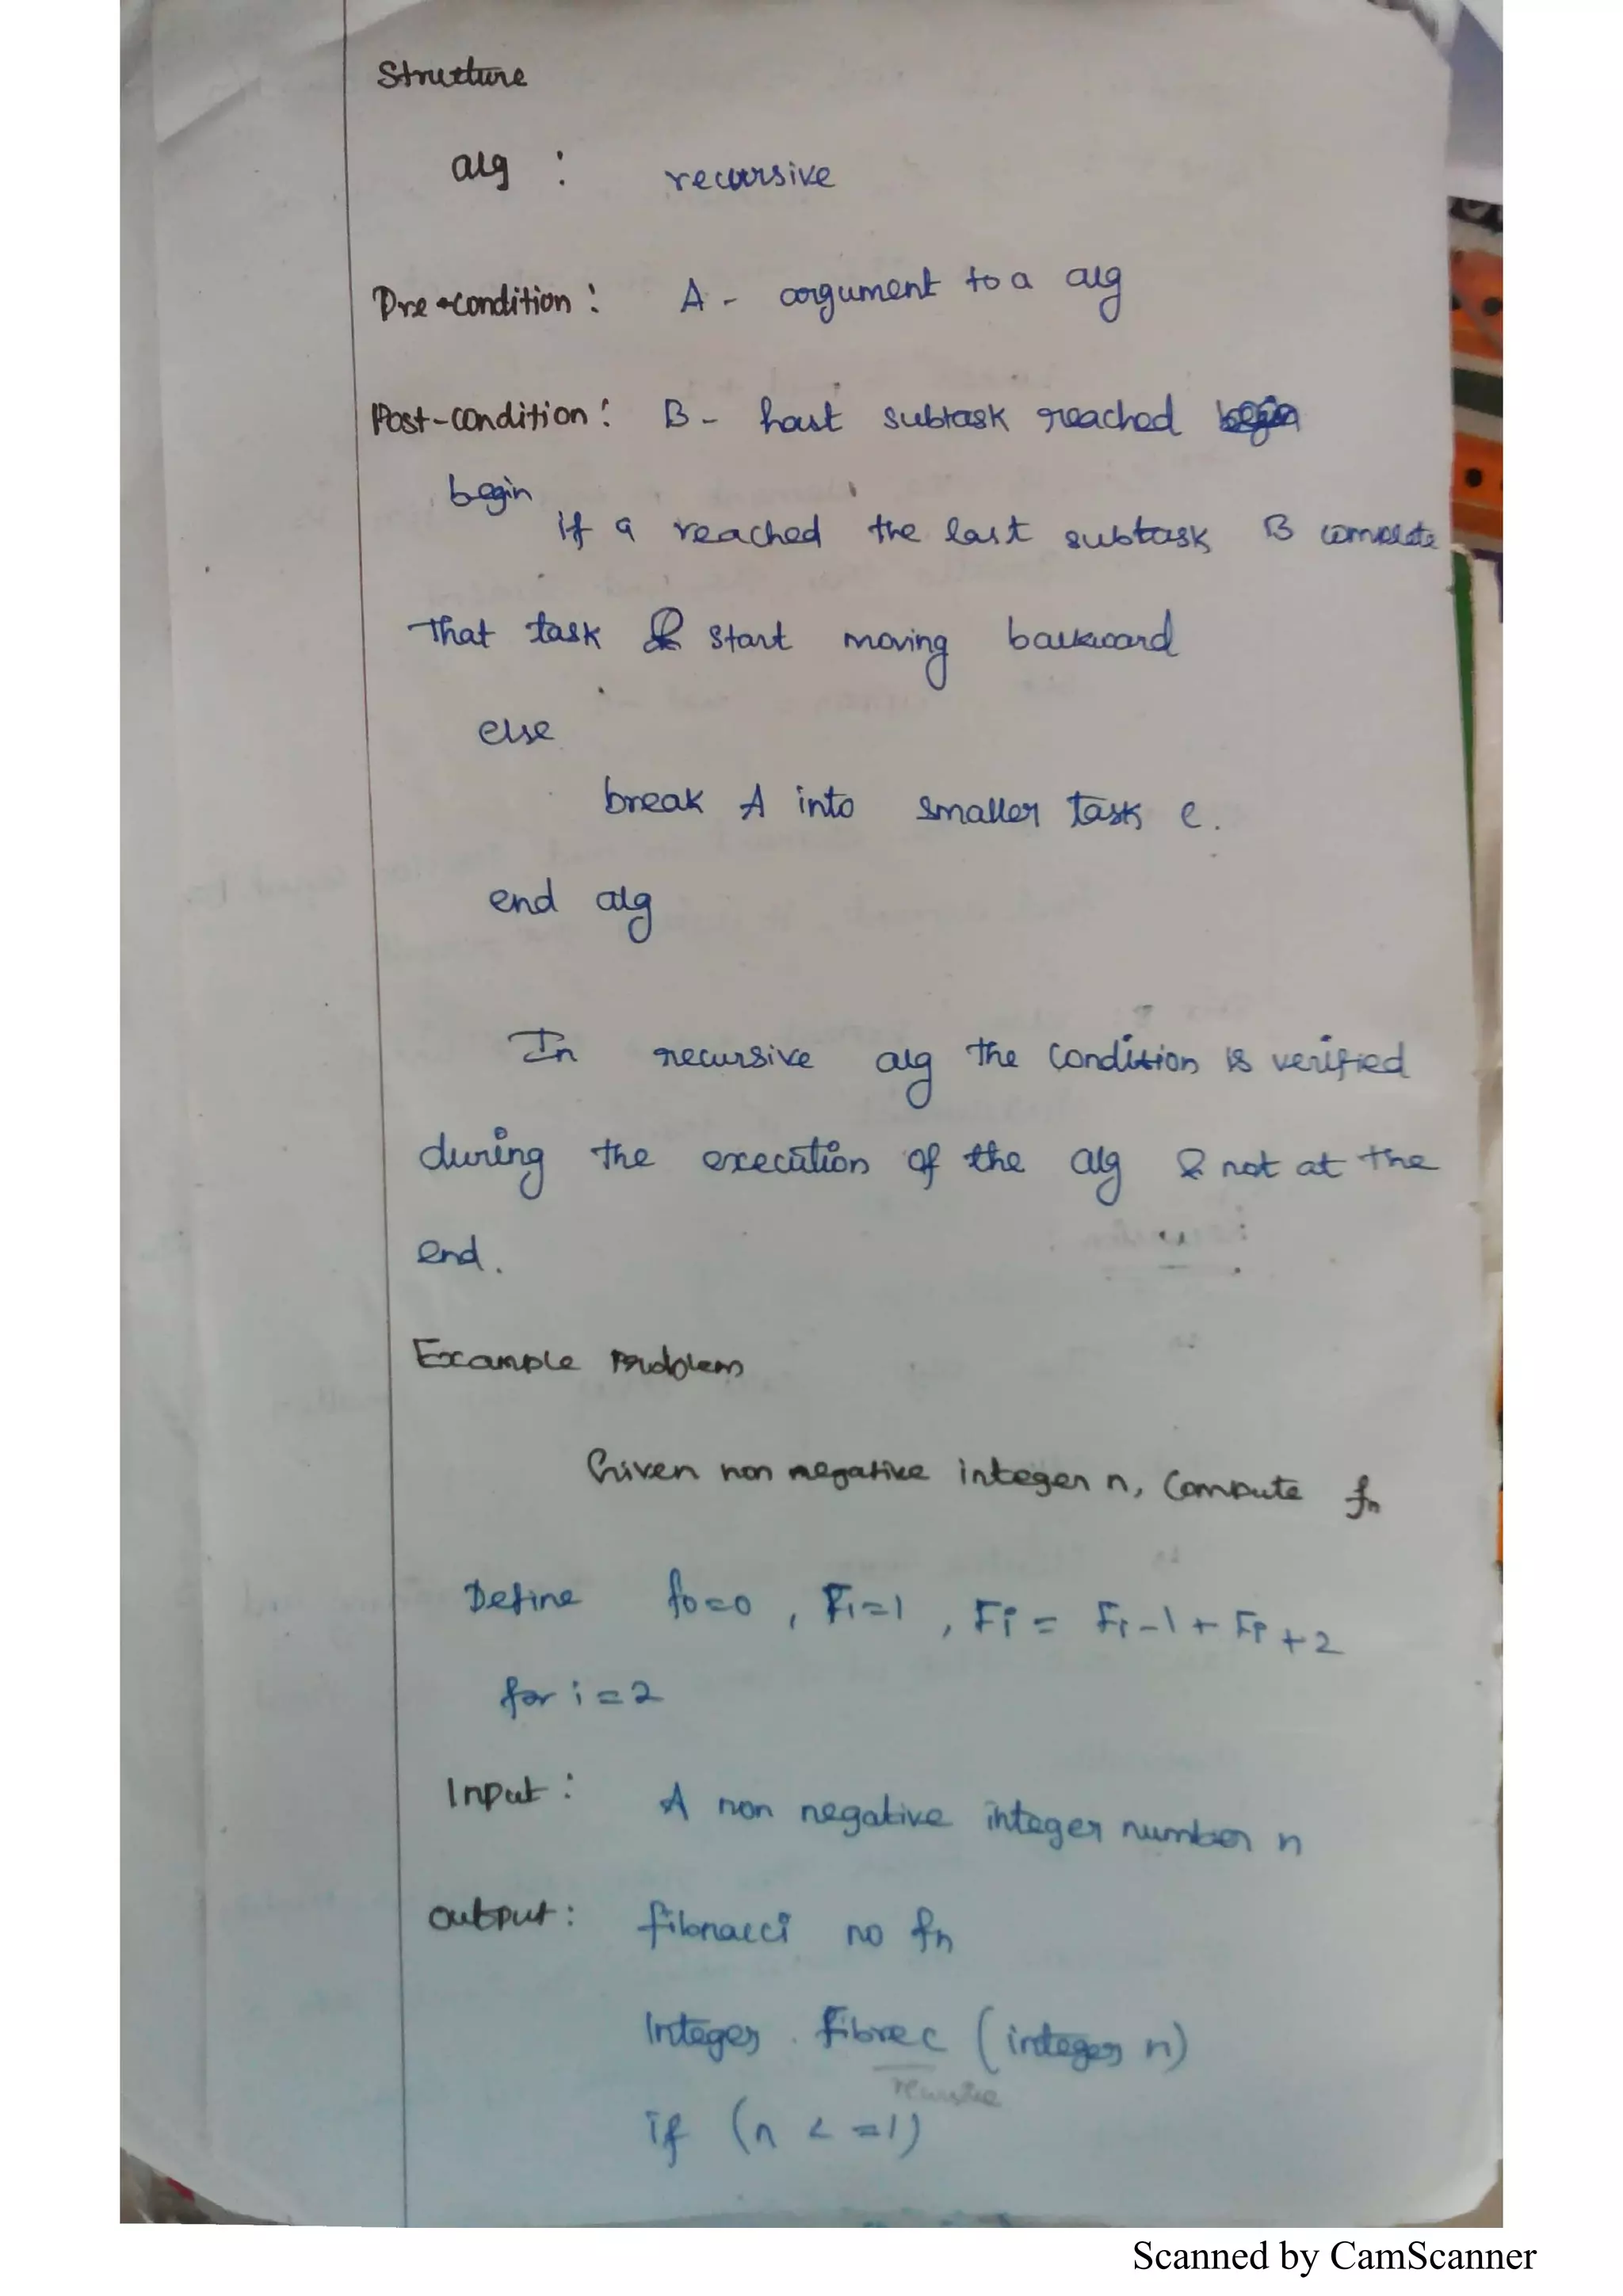 Structure
alg : recursive
Pre-condition : A - argument to a alg
Post-condition : B - last subtask reached
begin
if a reached the last subtask B complete
That task & start moving backward
else
break A into smaller task c.
end alg
In recursive alg the condition is verified
during the execution of the alg & not at the
end.
Example Problem
Given non negative integer n, compute fn
Define f0=0 , F1=1 , Fi = Fi-1 + Fi+2
for i = 2
Input : A non negative integer number n
output : fibonacci no fn
Integer Fibrec (integer n)
recursive
if (n < =1)
Scanned by CamScanner